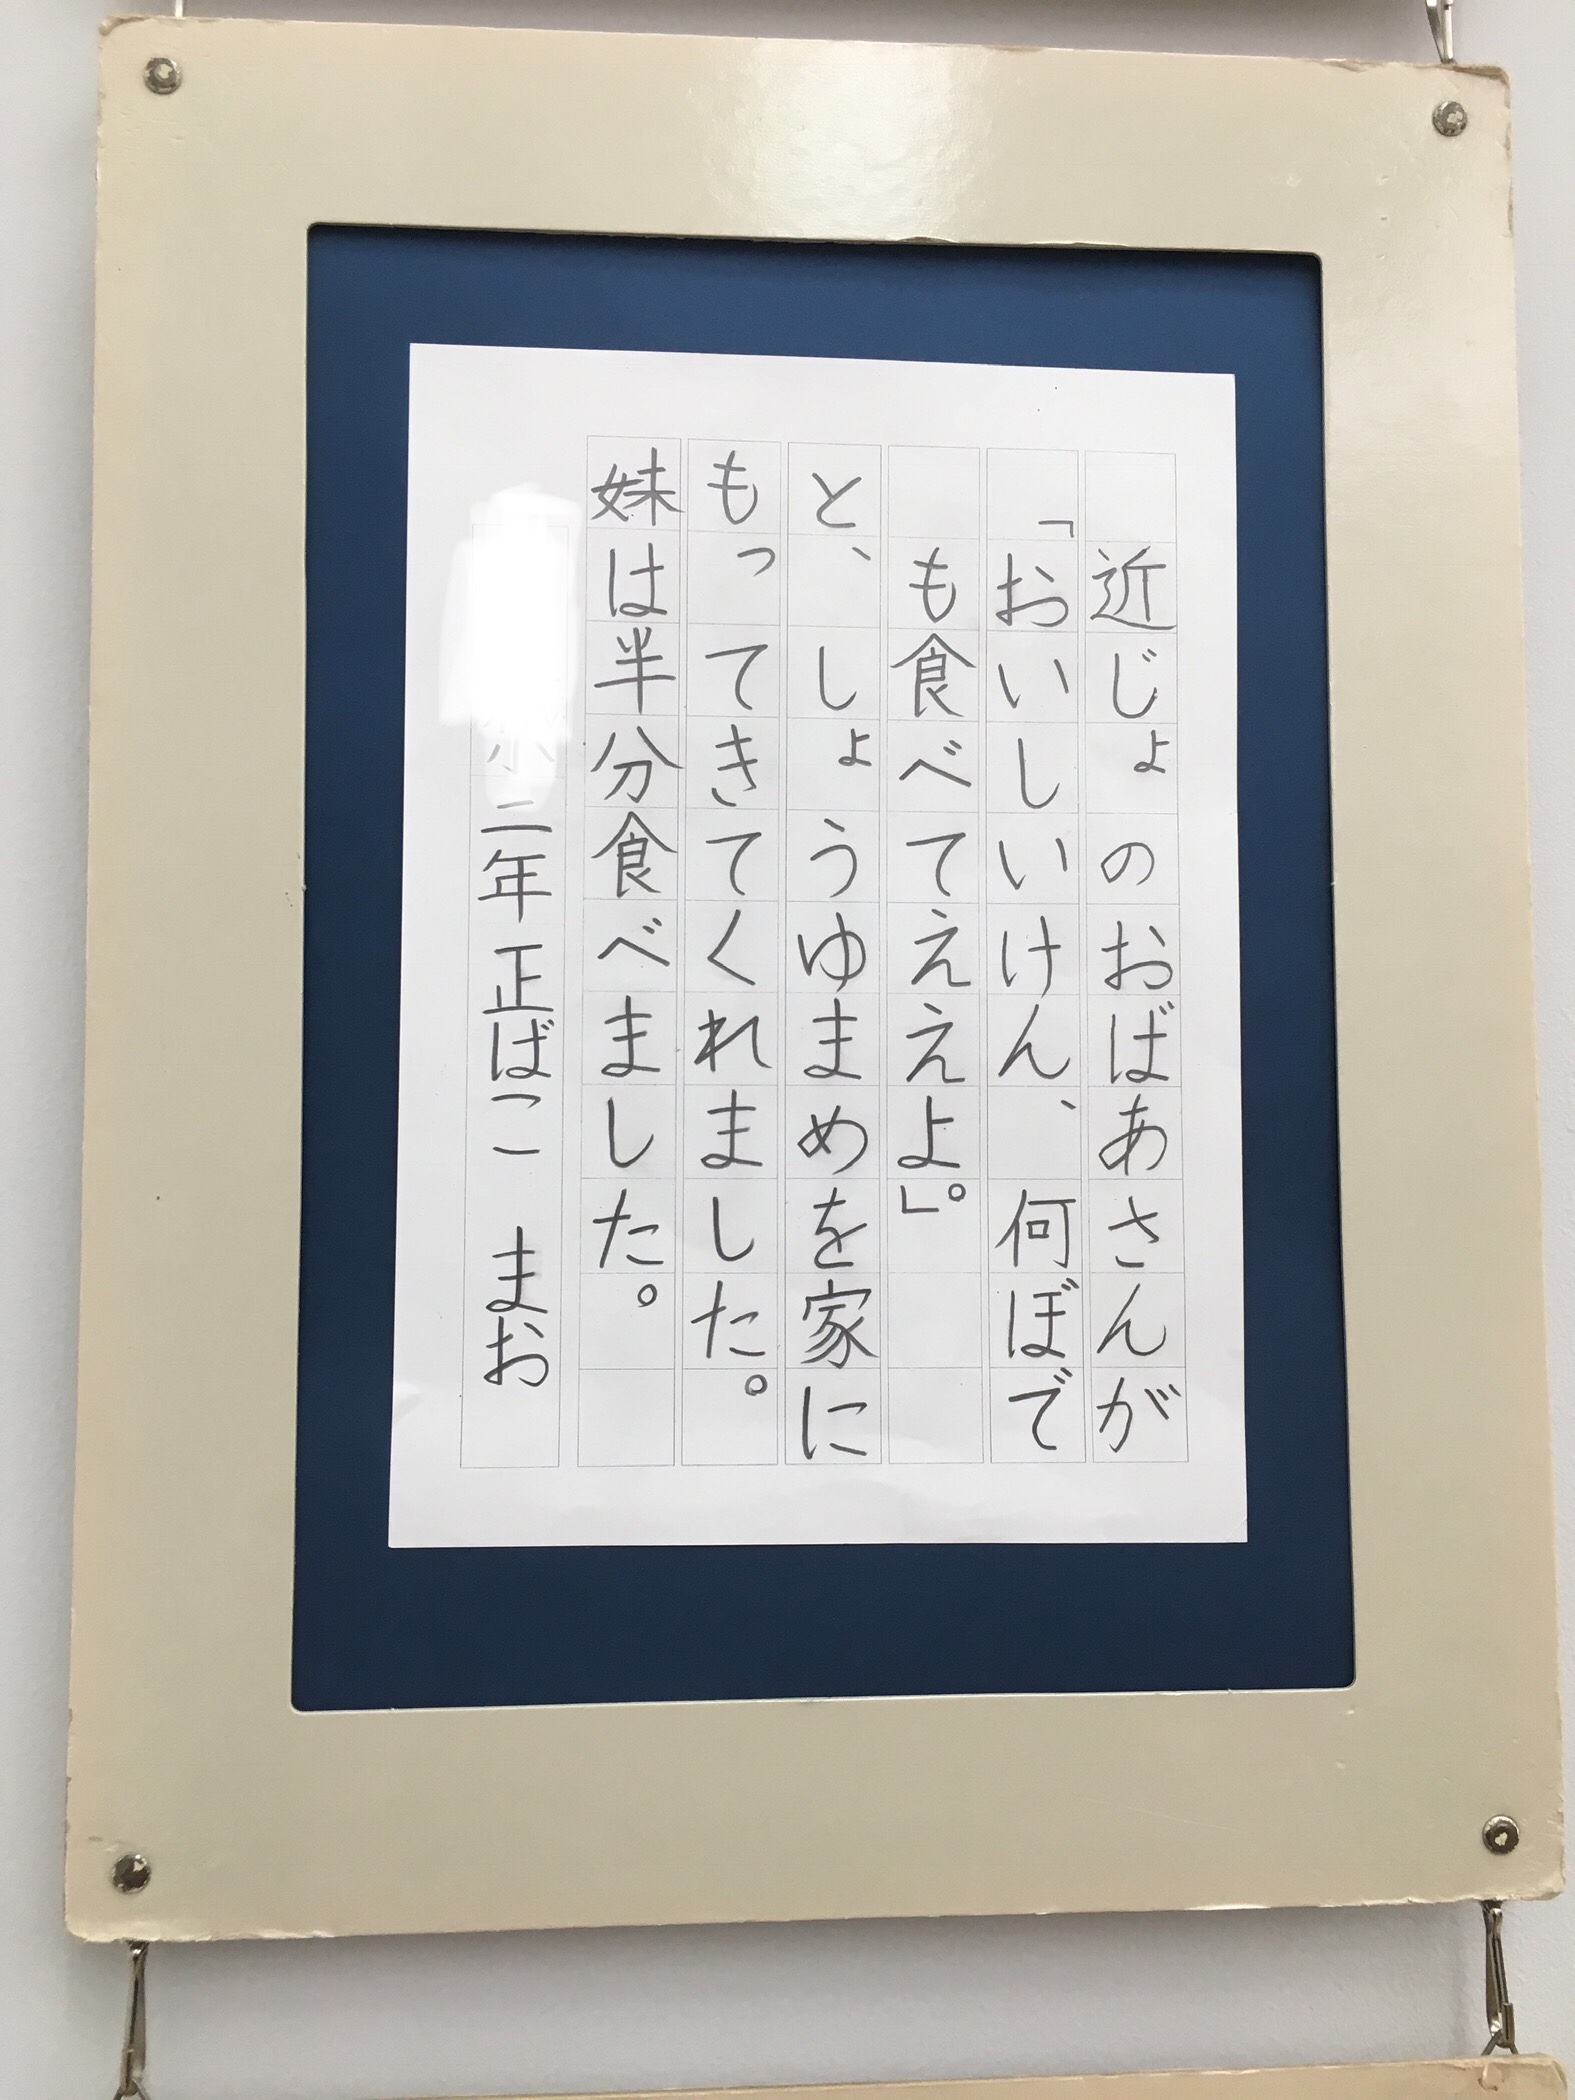 近じょのおばあさんが
「おいしいけん、何ぼで
も食べてええよ」。
と、しょうゆまめを家に
もってきてくれました。
妹は半分食べました。
小二年 正ばこ まお